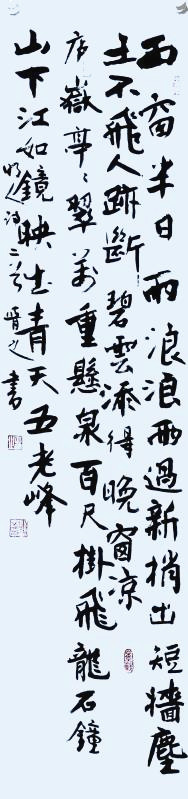 西窗半日雨浪浪雨過新梢出短牆塵
土不飛人跡斷碧雲添得晚窗涼
店嶽亭亭翠萬重懸泉百尺掛飛龍石鐘
山下江如鏡映出青天五老峰
明人詩二首
書